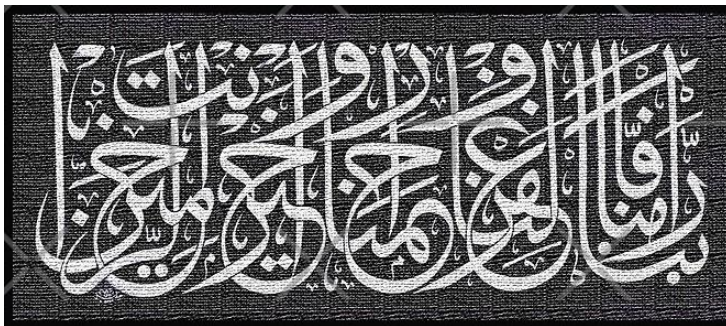 ربنا آمنا فاغفر لنا وارحمنا وأنت خير الراحمين